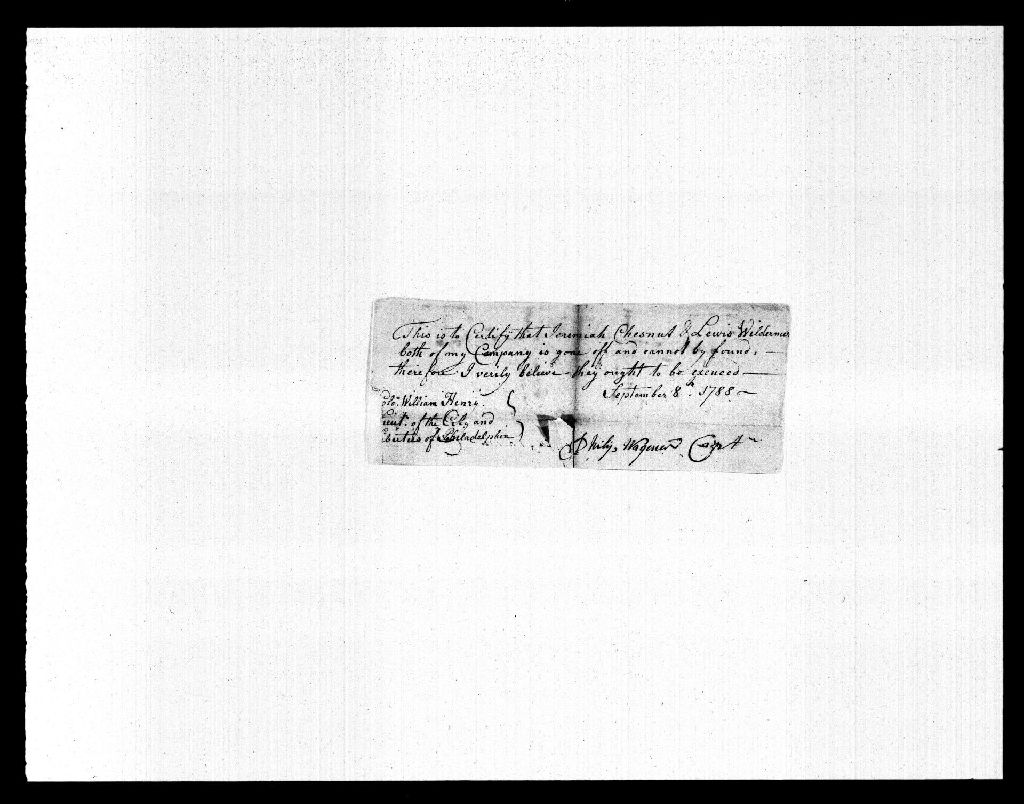 This is to Certify that Jeremiah Chesnut & Lewis Wildermu
both of my Company is gone off and cannot by found, —
therefore I verily believe they ought to be excuced —
September 8th. 1788 —
Colo. William Henry
Lieut. of the City and
Liberties of Philadelphia
Philip Wagener Capt